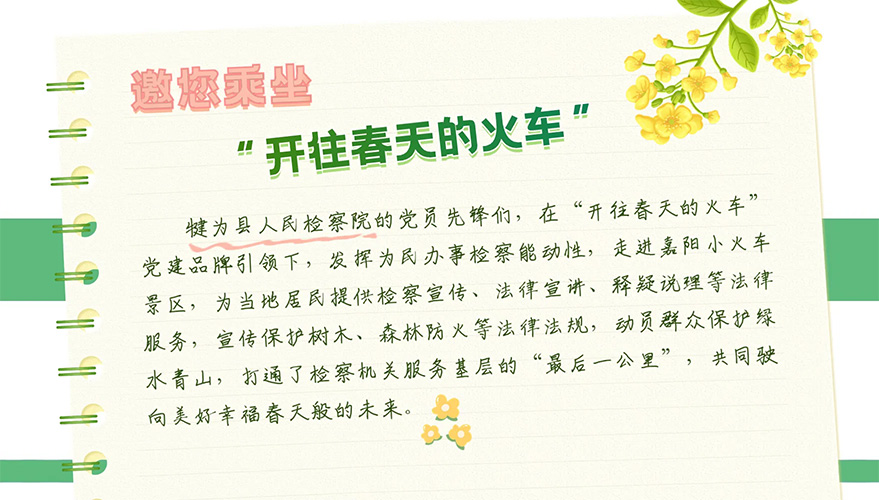 邀您乘坐
“开往春天的火车”
犍为县人民检察院的党员先锋们，在“开往春天的火车”
党建品牌引领下，发挥为民办事检察能动性，走进嘉阳小火车
景区，为当地居民提供检察宣传、法律宣讲、释疑说理等法律
服务，宣传保护树木、森林防火等法律法规，动员群众保护绿
水青山，打通了检察机关服务基层的“最后一公里”，共同驶
向美好幸福春天般的未来。